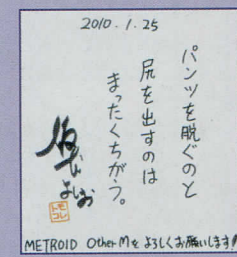 2010.1.25
パンツを脱ぐのと
尻を出すのは
まったくちがう。
よしお
トモ
コレ
METROID Other Mを よろしくお願いします!